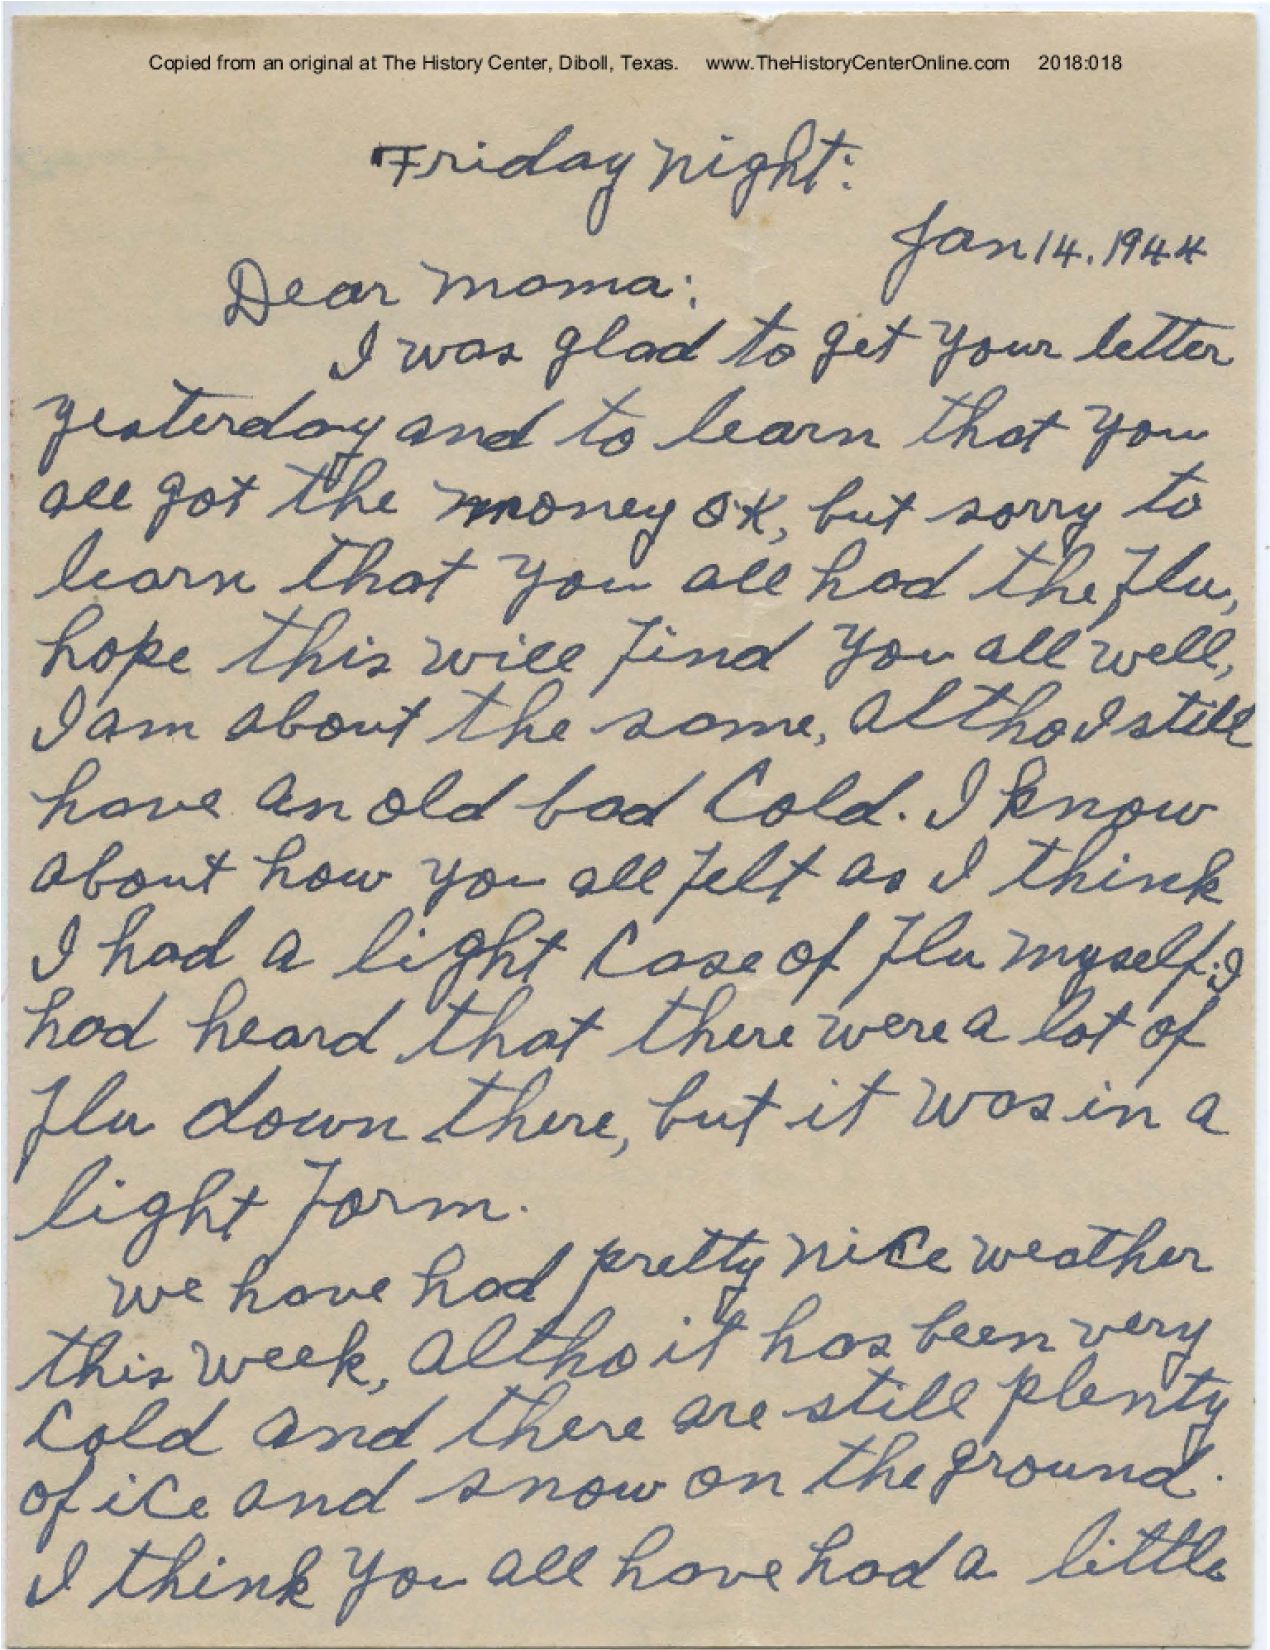 Copied from an original at The History Center, Diboll, Texas. www.TheHistoryCenterOnline.com 2018:018
Friday night:
Jan 14. 1944
Dear Moma:
I was glad to get your letter
yesterday and to learn that you
all got the money OK, but sorry to
learn that you all had the, Flu,
hope this will find you all well,
I am about the same, altho I still
have an old bad Cold. I know
about how you all felt as I think
I had a light Case of Flu myself; I
had heard that there were a lot of
Flu down there, but it was in a
light Form.
We have had pretty nice weather
this week, altho it has been very
Cold and there are still plenty
of ice and snow on the ground.
I think you all have had a little